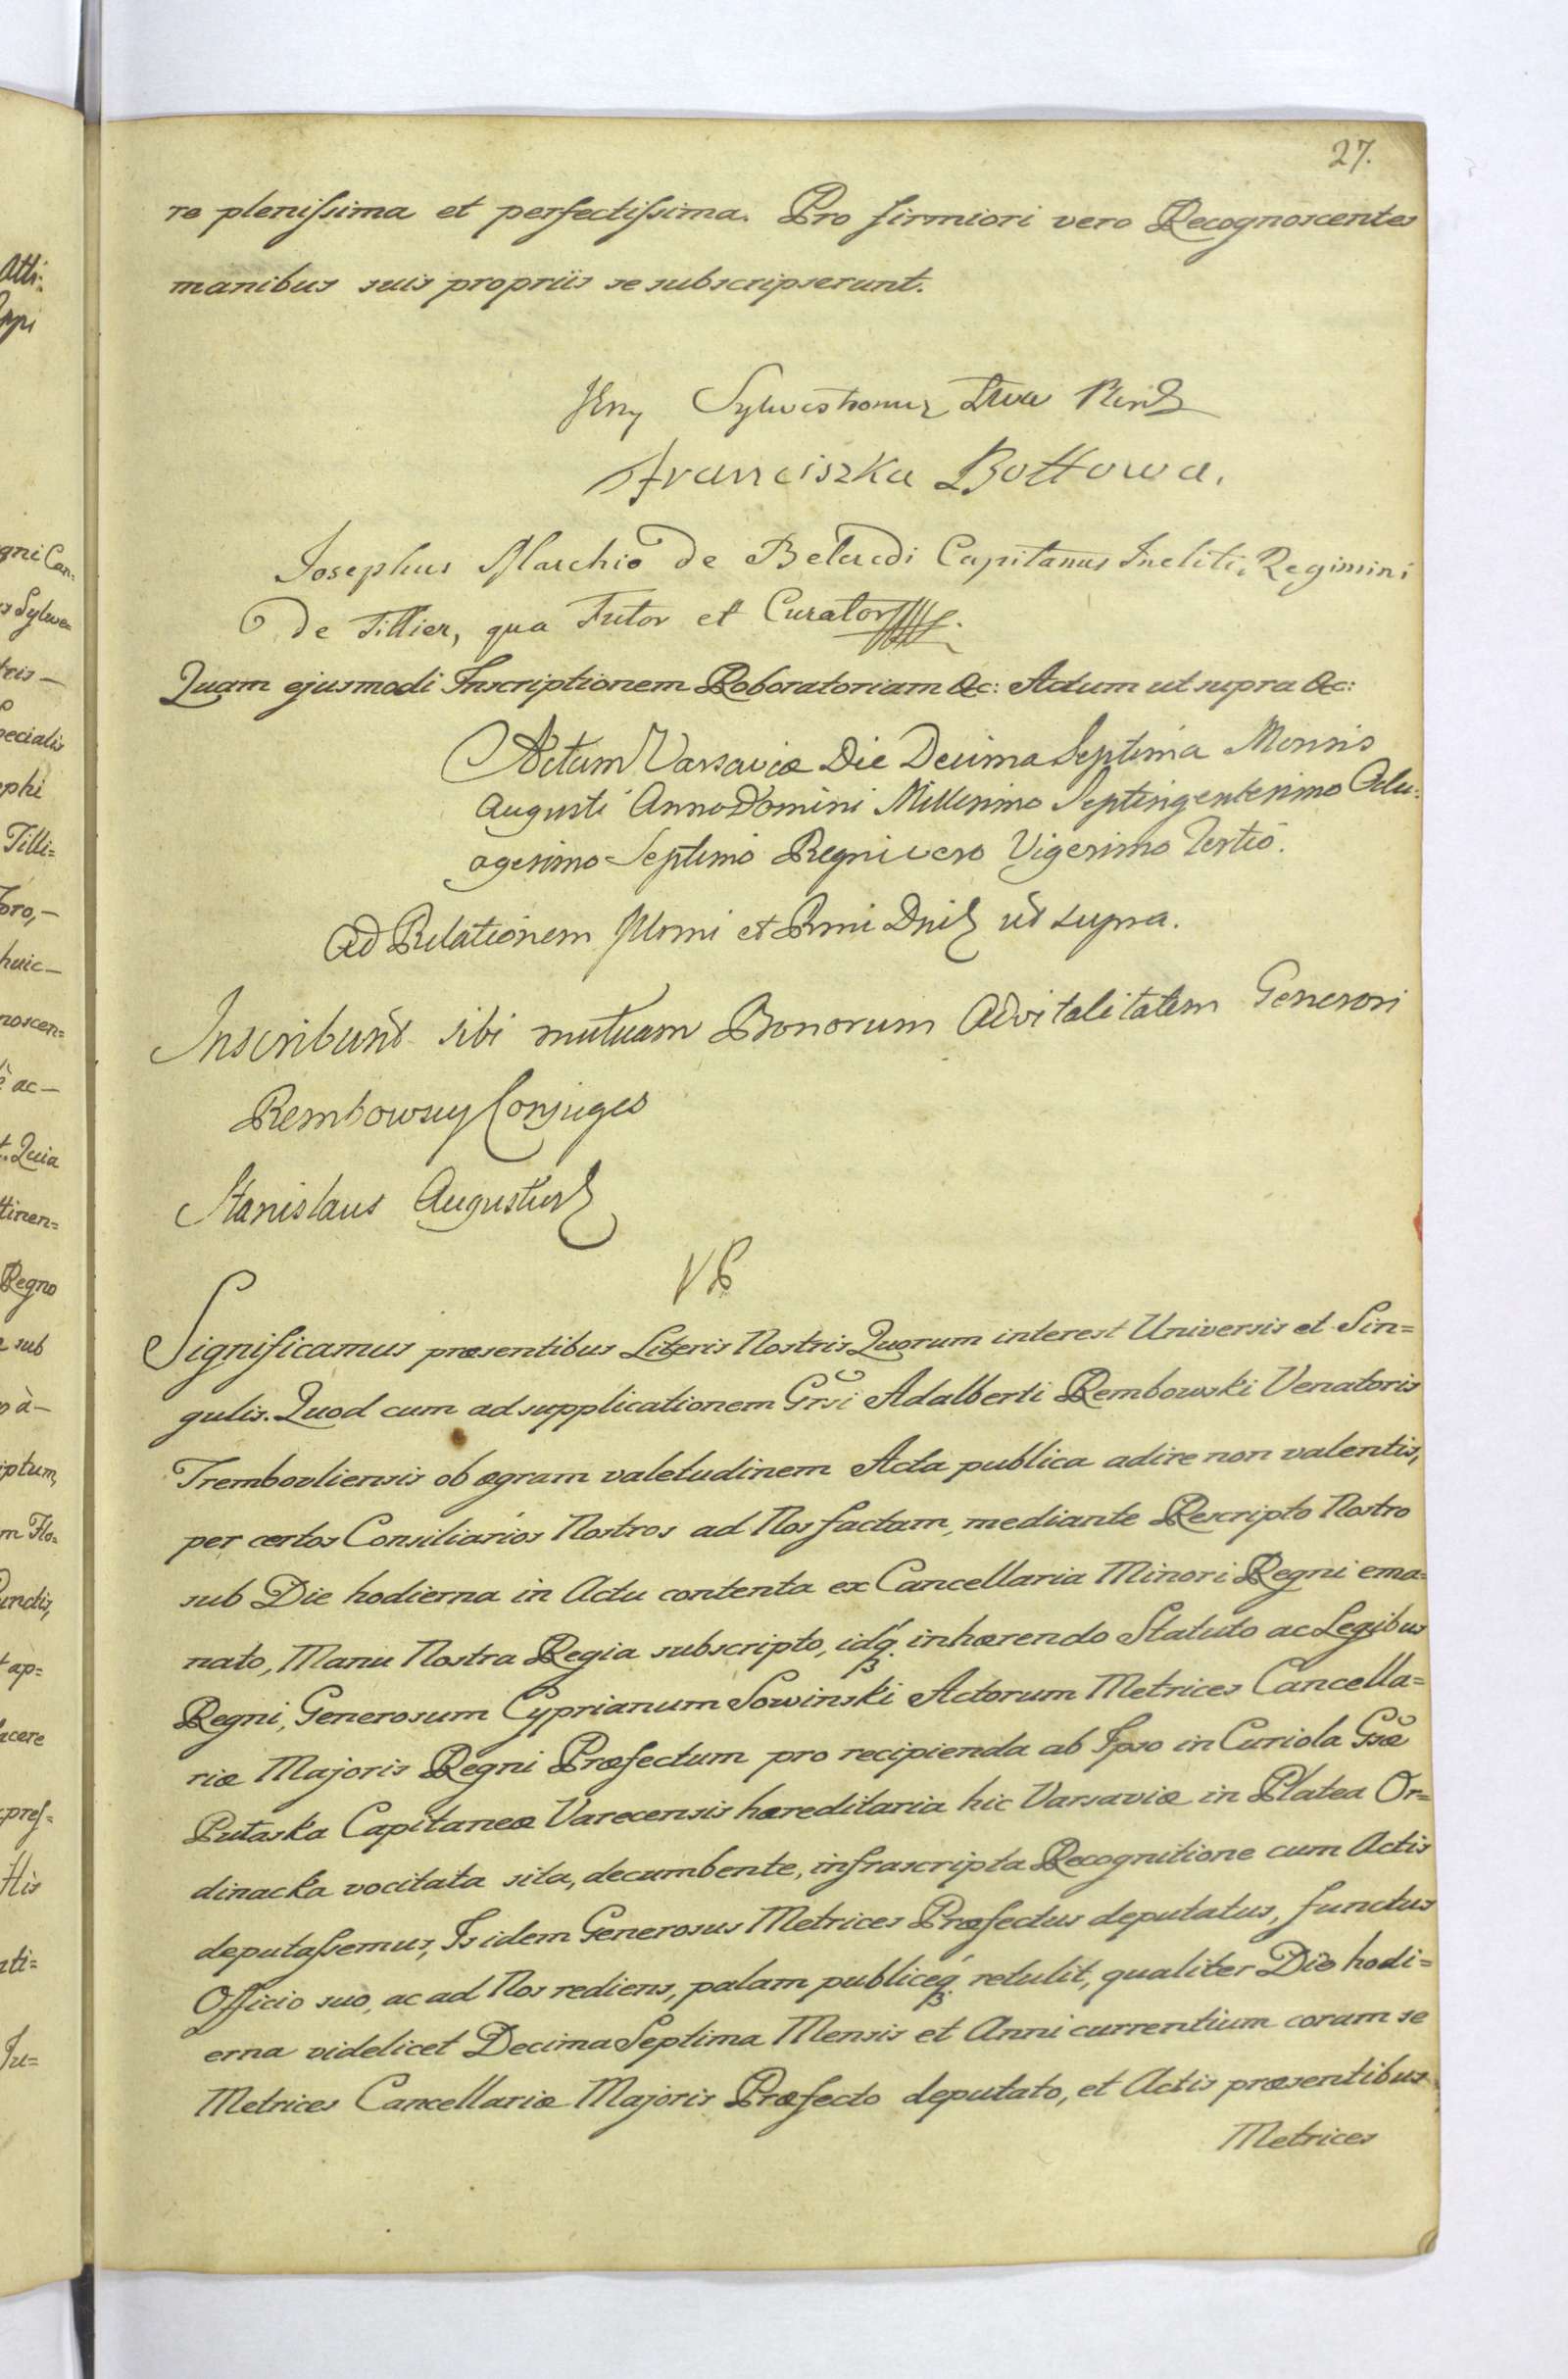 27.
re plenissima et perfectissima. Pro firmiori vero Recognoscentes
manibus suis propriis se subscripserunt.
Franciszka Bottowa.
Josephus Marchio de Beluedi Capitanus Incliti Regimini
de Tillier, qua Tutor et Curator
Quam ejusmodi Inscriptionem Roboratoriam &c: Actum ut supra &c:
Actum Varsaviæ Die Decima Septima Mensis
Augusti Anno Domini Millesimo Septingentesimo Octu-
agesimo Septimo Regni vero Vigesimo Tertio.
Ad Relationem Illmi et Rmi Dni ut supra.
Inscribunt sibi mutuam Bonorum Advitalitatem Generosi
Rembowscy Conjuges
Stanislaus Augustus
Significamus præsentibus Literis Nostris Quorum interest Universis et Sin=
gulis. Quod cum ad supplicationem Grsi Adalberti Rembowski Venatoris
Trembovliensis ob ægram valetudinem Acta publica adire non valentis,
per certos Consiliarios Nostros ad Nos factam, mediante Rescripto Nostro
sub Die hodierna in Actu contenta ex Cancellaria Minori Regni ema=
nato, Manu Nostra Regia subscripto, idq. inhærendo Statuto ac Legibus
Regni, Generosum Cyprianum Sowinski Actorum Metrices Cancella=
riæ Majoris Regni Præfectum pro recipienda ab Ipso in Curiola Gsæ
Putaska Capitaneæ Varecensis hæreditaria hic Varsaviæ in Platea Or=
dinacka vocitata sita, decumbente, infrascripta Recognitione cum Actis
deputassemus, Is idem Generosus Metrices Præfectus deputatus, functus
Officio suo, ac ad Nos rediens, palam publiceq. retulit, qualiter Die hodi=
erna videlicet Decima Septima Mensis et Anni currentium coram se
Metrices Cancellariæ Majoris Præfecto deputato, et Actis præsentibus
Metrices